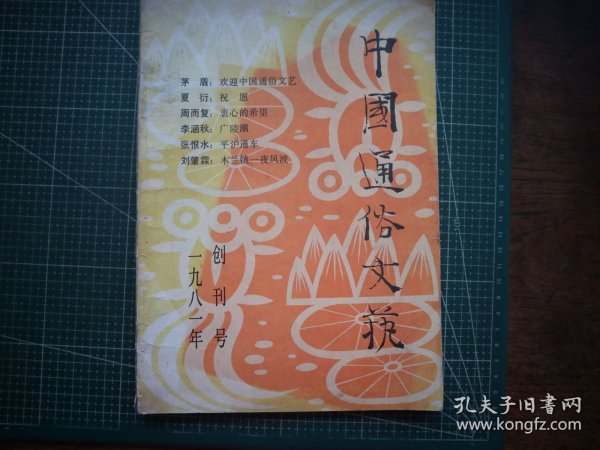 中國通俗文藝
茅 盾：欢迎中国通俗文艺
夏 衍：祝 愿
周而复：衷心的希望
李涵秋：广陵潮
张恨水：平沪通车
刘肇霖：木兰镇一夜风波
创刊号
一九八一年
孔夫子旧書网
www.kongfz.com